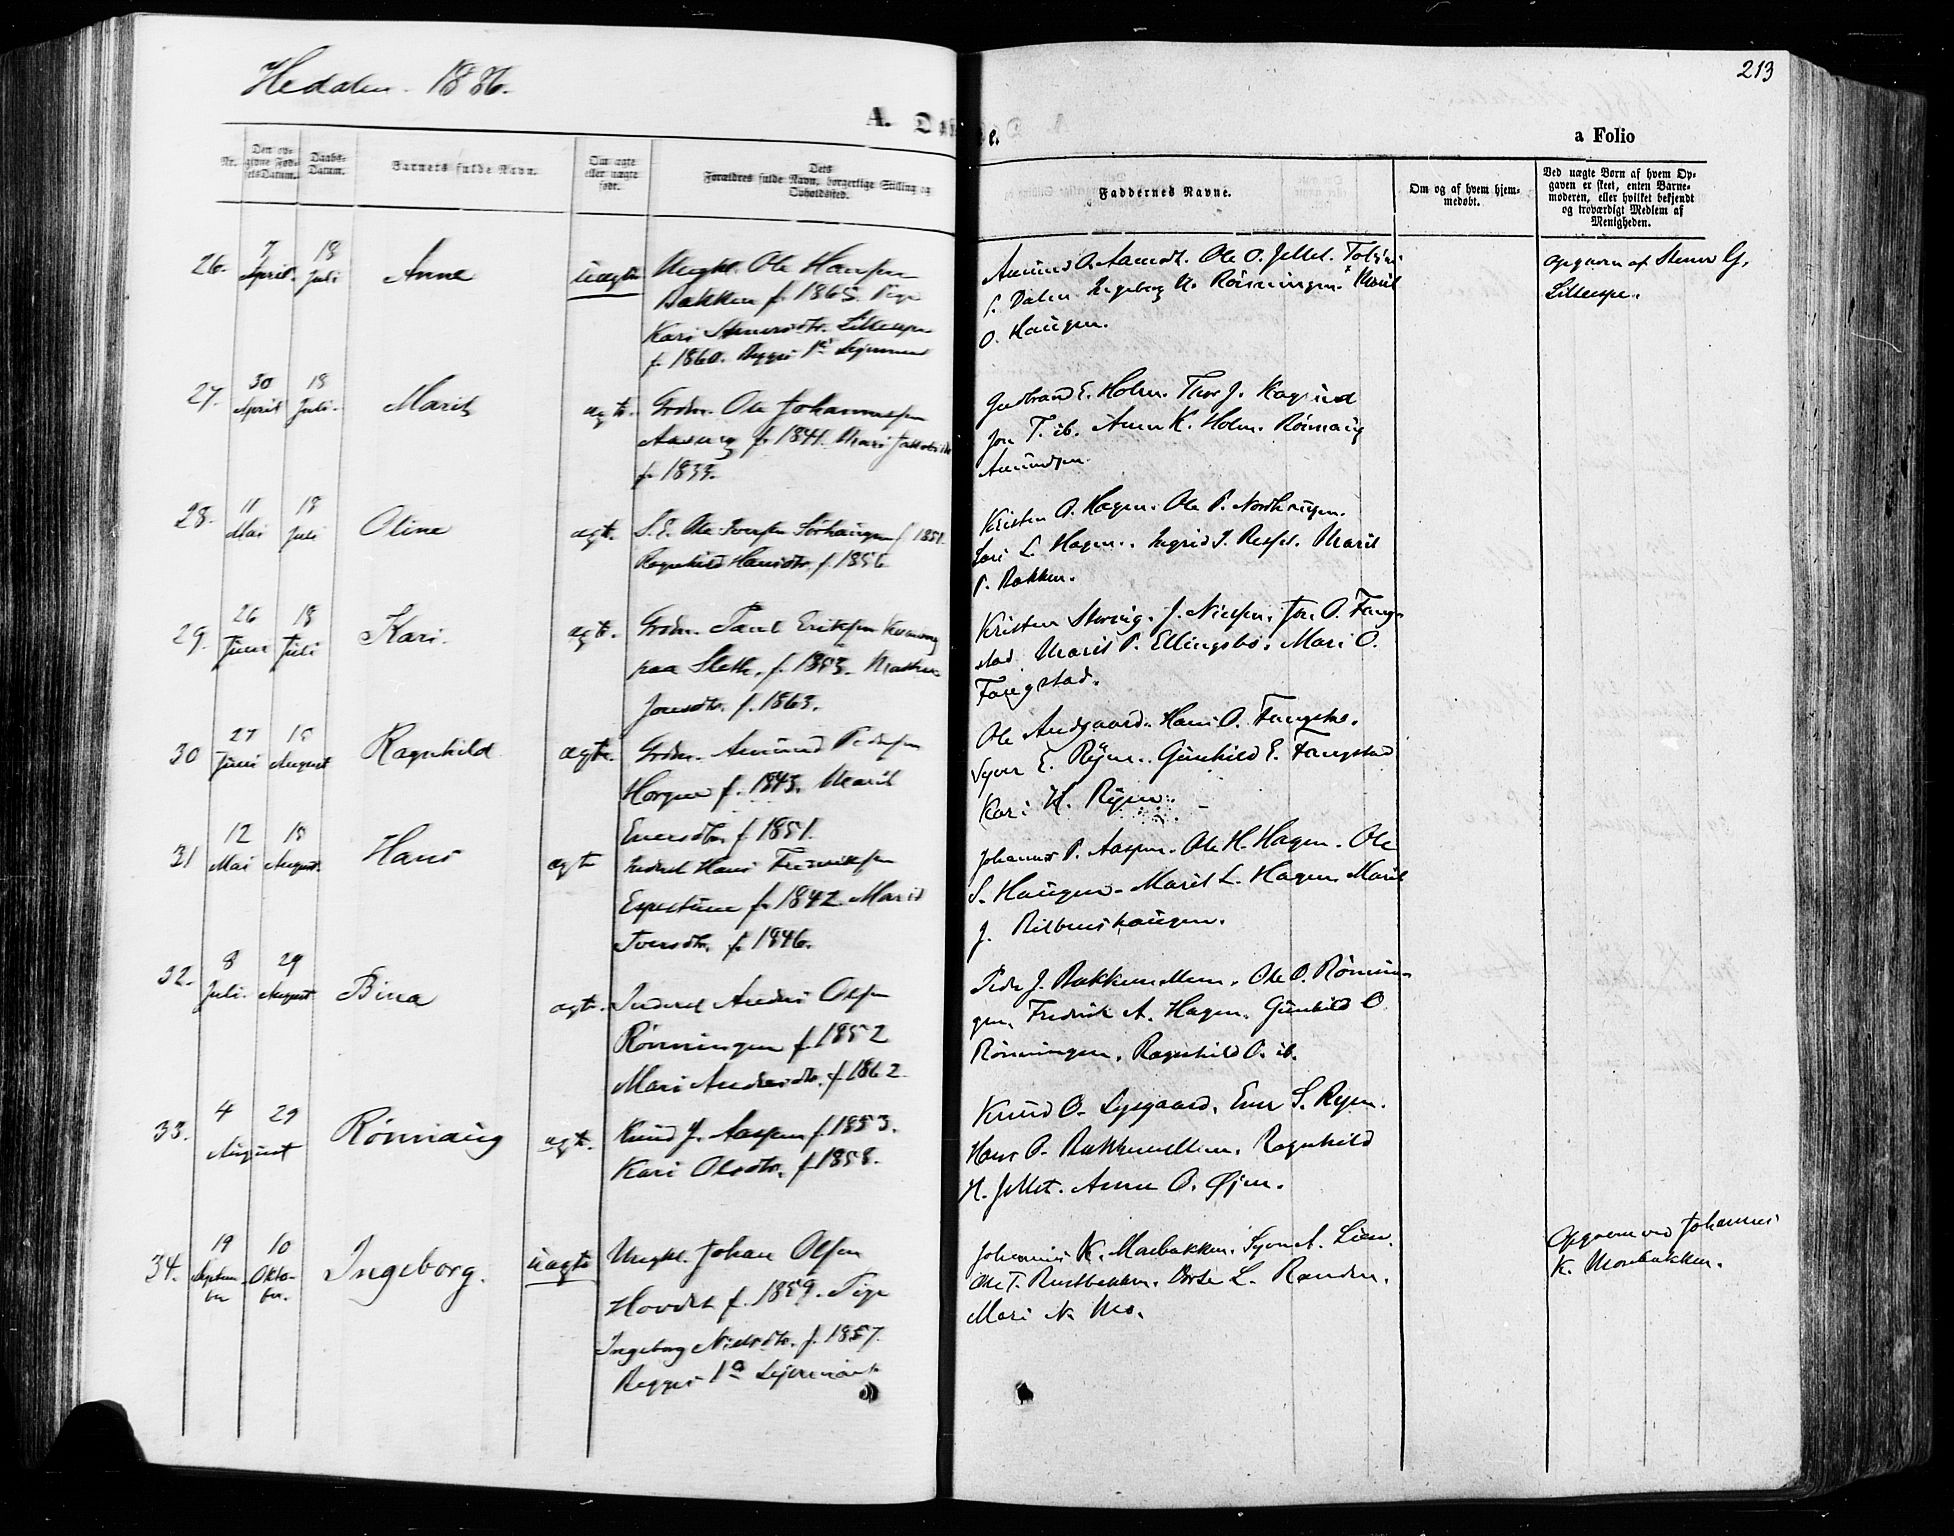 Hedalen. 1886.
213
A. Dø
e.
a Folio
Nr.
Den op-
givne Fød-
selsDatum.
Daabs-
Datum.
Barnets fulde Navn.
Om ægte
eller uægte
født.
Dets
Forældres fulde Navn, borgerlige Stilling og
Opholdssted.
Faddernes Navne.
Om og af hvem hjem-
medøbt.
Ved uægte Børn af hvem Op-
gaven er skeet, enten Barne-
moderen, eller hvilket bekjendt
og troværdigt Medlem af
Menigheden.
26.
7
April.
18
Juli
Anne
uægte
Ungkl. Ole Hansen
Bakken f. 1865. Pige
Kari Stenersdtr.
f. 1860. Begges 1ste Leiermaal
Amund A. Ole O. Jellet.
Dalen Ingeborg Rönningen. Marit
O. Haugen.
opgiven af Stener G.
27.
30
April
18
Juli.
Marit
ægte.
Grdm. Ole Johannessen
f. 1841. Mari Jakobsdtr
f. 1839.
Gudbrand E. Holm. Thor J. Kagrud
Jon T. ib. Anne K. Holm. Rönnaug
Amundsen.
28.
11
Mai
18
Juli
Oline
ægte.
S. E. Ole Iversen Sörhaugen f. 1851.
Ragnhild Hansdtr. f. 1856
Kristen O. Hagen. Ole P. Nordhaugen.
L. Hagen. Ingrid J. Marit
P. Bakken.
29.
26
Juni
18
Juli
Kari.
ægte.
Grdm. Paul Eriksen
paa Sleth. f. 1853.
Jonsdtr. f. 1863.
Kristen J. Nielsen. Jon O. Faug-
stad. Marit P. Ellingsbö. Mari O.
Faugstad.
30
27
Juni
15
August
Ragnhild
ægte.
Grdm. Amund Pedersen
Horgen f. 1843. Marit
Eversdtr. f. 1851.
Ole Hans O.
Syver E. Ryen. Gunhild E. Faugstad
Kari H. Ryen.
31
12
Mai
15
August.
Hans
ægte
Inderst Hans Fredriksen
Espelien f. 1842. Marit
Iversdtr. f. 1846.
Johannes P. Aaspen. Ole H. Hagen. Ole
S. Haugen. Marit L. Hagen. Marit
J.
32.
8
Juli.
29
August
Bina
ægte.
Inderst Anders Olsen
Rönningen f. 1852
Mari Andersdtr. f. 1862.
Peder J. Bakkemellem. Ole O. Rönnin-
gen. Fredrik A. Hagen. Gunhild O.
Rönningen. Ragnhild O. ib.
33.
4
29
August
Rönnaug
ægte.
Knud J. Aaspen f. 1853.
Kari Olsdtr. f. 1858.
Knud O. Lysgaard. Ever S. Ryen.
Hans O. Bakkemellem. Ragnhild
H. Jellet. Anne O. Øjen.
34.
19
Septem-
ber
10
Okto-
ber.
Ingeborg.
uægte
Ungkl. Johan Olsen
Hovdet f. 1859. Pige
Ingeborg Nielsdtr. f. 1857.
Begges 1ste Leiermaal
Johannes K. Moebakken. Syver A. Lien.
Ole T. Rustbakken. Berte L.
Mari N. Mo.
Opgiven ved Johannes
K. Moebakken.